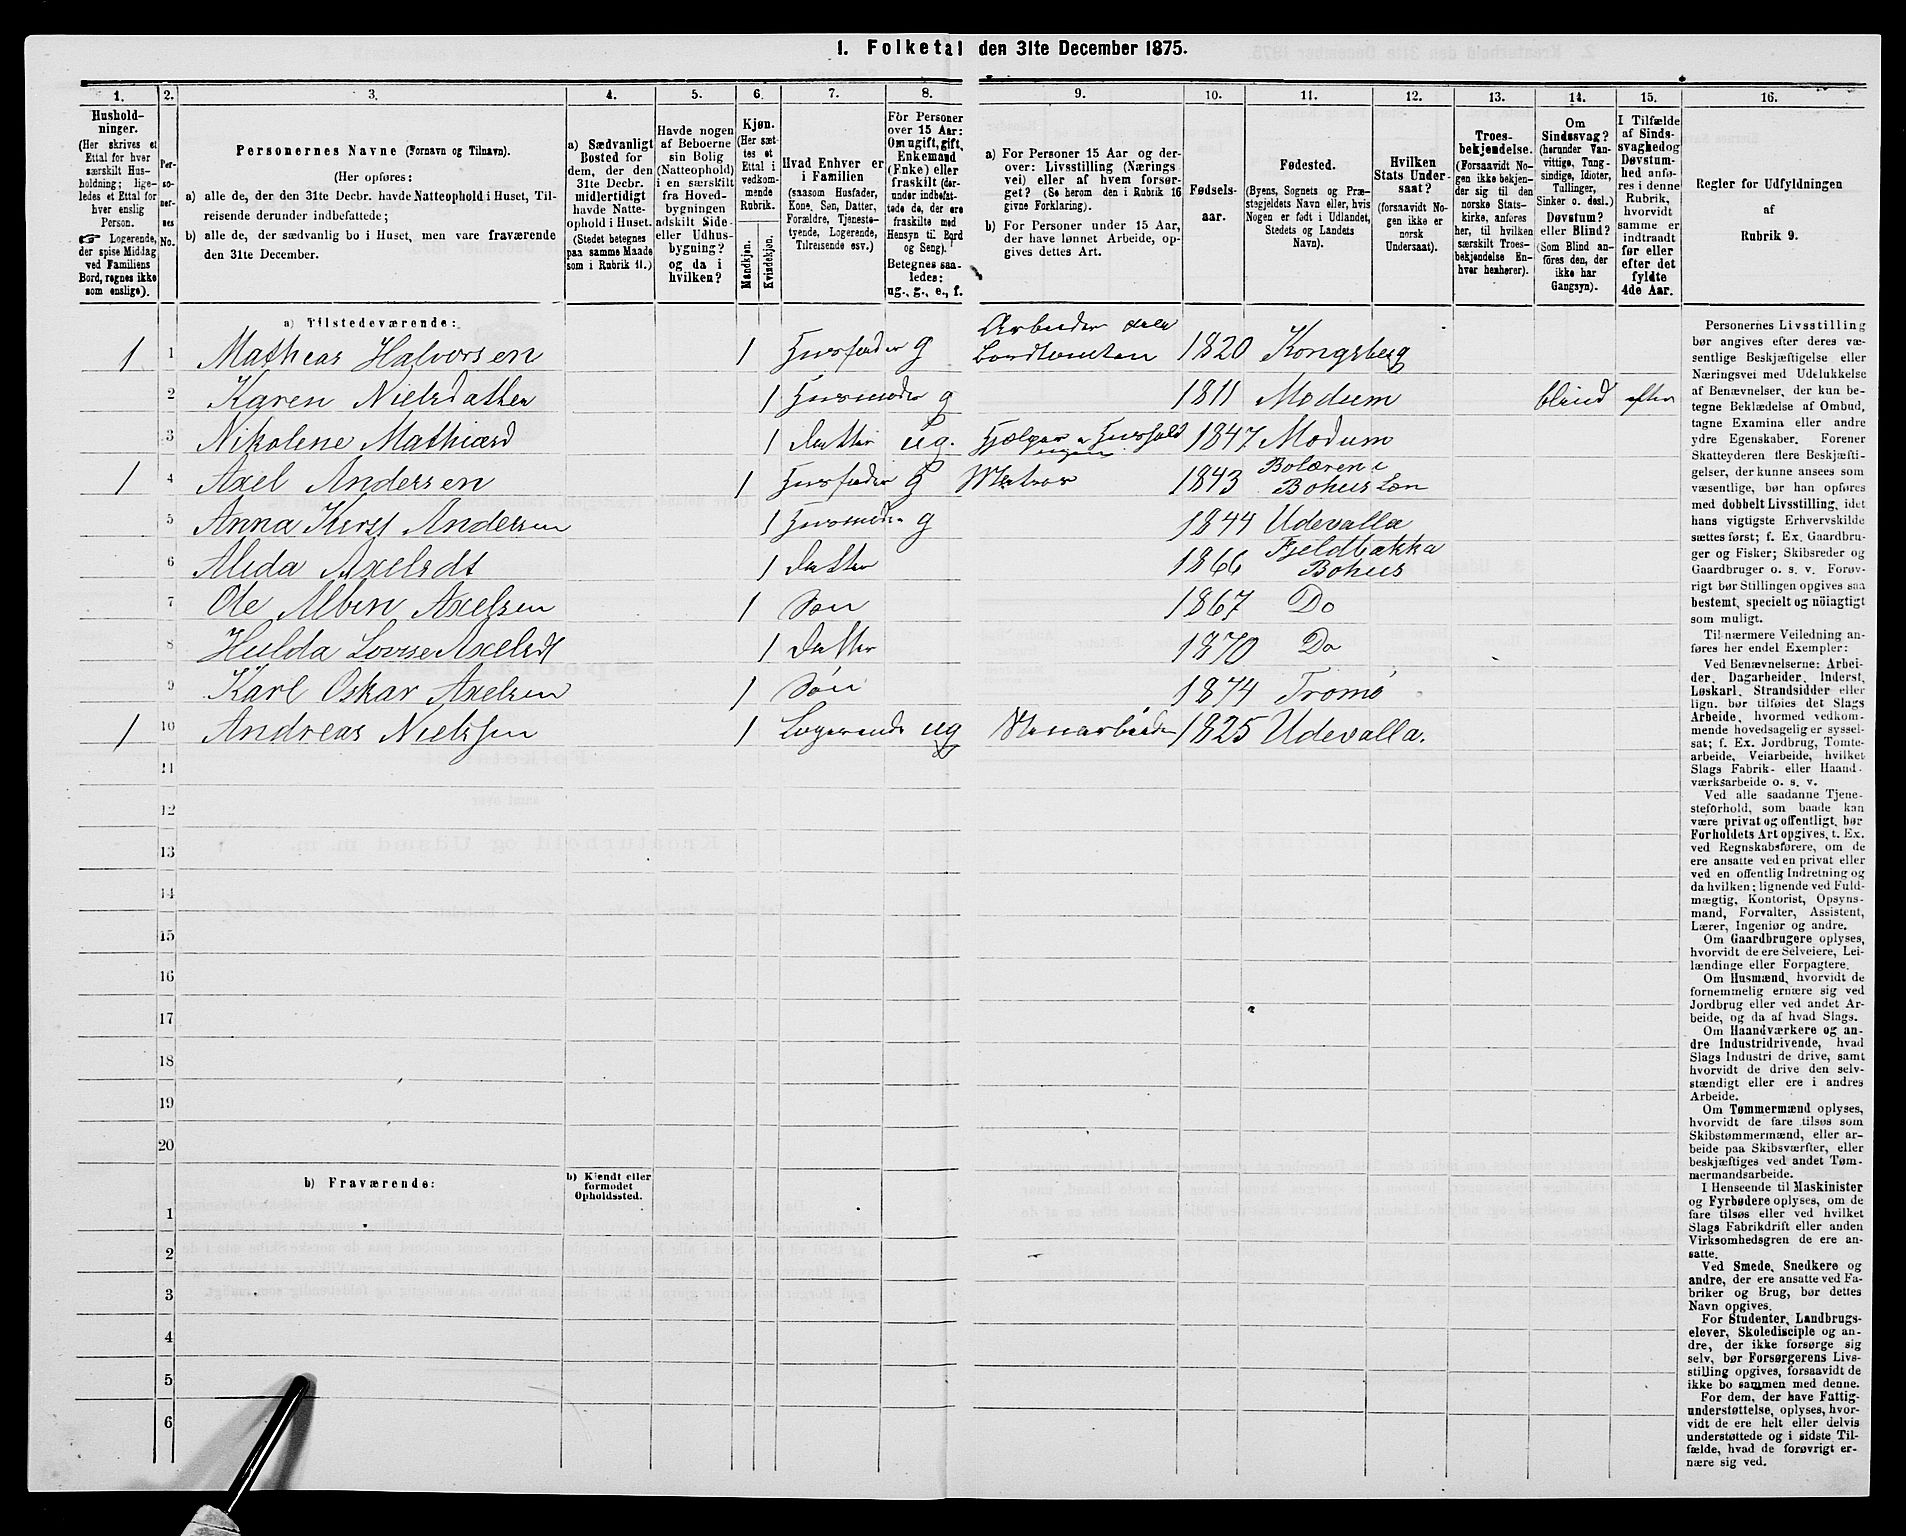 1. Folketal den 31te December 1875.
1. 2. 3. 4. 5. 6. 7. 8. 9. 10. 11. 12. 13. 14. 15. 16.
Hushold-
ninger.
(Her skrives et
Ettal for hver
særskilt Hus-
holdning; lige-
ledes et Ettal for
hver enslig
Person.
☞ Logerende,
der spise Middag
ved Familiens
Bord, regnes ikke
som enslige).
Per-
so-
ner-
nes
No.
Personernes Navne (Fornavn og Tilnavn).
(Her opføres:
a) alle de, der den 31te Decbr. havde Natteophold i Huset, Til-
reisende derunder indbefattede;
b) alle de, der sædvanlig bo i Huset, men vare fraværende
den 31te December.
a) Sædvanligt
Bosted for
dem, der den
31te Decbr.
midlertidigt
havde Natte-
ophold i Huset.
(Stedet betegnes
paa samme Maade
som i Rubrik 11.)
Havde nogen
af Beboerne
sin Bolig
(Natteophold)
i en særskilt
fra Hoved-
bygningen
adskilt Side-
eller Udhus-
bygning?
og da i
hvilken?
Kjøn.
(Her sæt-
tes et
Ettal i
vedkom-
mende
Rubrik.
Mandkjøn.
Kvindekjøn.
Hvad Enhver er
i Familien
(saasom Husfader,
Kone, Søn, Datter,
Forældre, Tjeneste-
tyende, Logerende,
Tilreisende osv.)
For Personer
over 15 Aar:
Om ugift, gift,
Enkemand
(Enke) eller
fraskilt (der-
under indbefat-
tede de, der ere
fraskilte med
Hensyn til Bord
og Seng).
Betegnes saa-
ledes:
ug., g., e., f.
a) For Personer 15 Aar og der-
over: Livsstilling (Nærings
vei) eller af hvem forsør-
get? (Se herom den i Rubrik 16
givne Forklaring).
b) For Personer under 15 Aar,
der have lønnet Arbeide, op-
gives dettes Art.
Fødsels-
aar.
Fødested.
(Byens, Sognets og Præ-
stegjeldets Navn eller, hvis
Nogen er født i Udlandet,
Stedets og Landets
Navn).
Hvilken
Stats Under-
saat?
(forsaavidt No-
gen ikke er
norsk
Undersaat).
Troes-
bekjendelse.
(Forsaavidt No-
gen ikke bekjen-
der sig til den
norske Stats-
kirke, anføres
her, til hvilken
særskilt Troes-
bekjendelse En-
hver henhører).
Om
Sindssvag?
(herunder Van-
vittige, Tung-
sindige, Idioter,
Tullinger,
Sinker o. desl.)
Døvstum?
eller Blind?
(Som Blind an-
føres den, der
ikke har
Gangsyn).
I Tilfælde
af Sinds-
svaghed og
Døvstum-
hed anfø-
res i denne
Rubrik,
hvorvidt
samme er
indtraadt
før eller
efter det
fyldte
4de Aar.
Regler for Udfyldningen
af
Rubrik 9.
a) Tilstedeværende:
1 1 Mathias Halvorsen 1 Husfader g Arbeider 1820 Kongsberg
2 Karen Nielsdatter 1 Husmoder g 1811 Modum blind efter
3 Nikolene Mathiasd 1 datter ug. Hjælper i Hushold 1847 Modum
1 4 Axel Andersen 1 Husfader g Matros 1843 Bolæren i
Bohus Len
5 Anna Kirst Andersen 1 Husmoder g 1844 Udevalla
6 Alida Axelsdt 1 datter 1866 Fjeldbakka
Bohus
7 Ole Albin Axelsen 1 Søn 1867 Do
8 Hulda Lovise Axelsdt 1 datter 1870 Do
9 Karl Oskar Axelsen 1 Søn 1874 Tromø
1 10 Andreas Nielsen 1 Logerende ug Stenarbeider 1825 Udevalla.
11
12
13
14
15
16
17
18
19
20
b) Fraværende:
b) Kjendt eller
formodet
Opholdssted.
1
2
3
4
5
6
Personernes Livsstilling
bør angives efter deres væ-
sentlige Beskjæftigelse eller
Næringsvei med Udelukkelse
af Benævnelser, der kun be-
tegne Beklædelse af Ombud,
tagne Examina eller andre
ydre Egenskaber. Forener
Skatteyderen flere Beskjæfti-
gelser, der kunne ansees som
væsentlige, bør han opføres
med dobbelt Livsstilling, idet
hans vigtigste Erhvervskilde
sættes først; f. Ex. Gaardbru-
ger og Fisker; Skibsreder og
Gaardbruger o. s. v. Forøv-
rigt bør Stillingen opgives saa
bestemt, specielt og nöiagtigt
som muligt.
Til nærmere Veiledning an-
føres her endel Exempler:
Ved Benævnelserne: Arbei-
der, Dagarbeider, Inderst,
Løskarl, Strandsidder eller
lign. bør tilføies det Slags
Arbeide, hvormed vedkom-
mende hovedsagelig er syssel-
sat; f. Ex. Jordbrug, Tomte-
arbeide, Veiarbeide, hvilket
Slags Fabrik- eller Haand-
værksarbeide o. s. v.
Ved alle saadanne Tjene-
steforhold, som baade kan
være privat og offentligt, bør
Forholdets Art opgives, t. Ex.
ved Regnskabsførere, om de
ere ansatte ved en privat eller
ved en offentlig Indretning og
da hvilken; lignende ved Fuld-
mægtig, Kontorist, Opsyns-
mand, Forvalter, Assistent,
Lærer, Ingeniør og andre.
Om Gaardbrugere oplyses,
hvorvidt de ere Selveiere, Lei-
lændinge eller Forpagtere.
Om Husmænd, hvorvidt de
fornemmelig ernære sig ved
Jordbrug eller ved andet Ar-
beide, og da af hvad Slags.
Om Haandværkere og an-
dre Industridrivende, hvad
Slags Industri de drive, samt
hvorvidt de drive den selv-
stændigt eller ere i andres
Arbeide.
Om Tømmermænd oplyses,
hvorvidt de fare tilsøs som
Skibstømmermænd, eller ar-
beide paa Skibsværfter, eller
beskjæftiges ved andet Tøm-
mermandsarbeide.
I Henseende til Maskinister
og Fyrbødere oplyses, om de
fare tilsøs eller ved hvilket
Slags Fabrikdrift eller anden
Virksomhedsgren de ere an-
satte.
Ved Smede, Snedkere og
andre, der ere ansatte ved Fa-
briker og Brug, bør dettes
Navn opgives.
For Studenter, Landbrugs-
elever, Skoledisciple og an-
dre, der ikke forsørge sig
selv, bør Forsørgerens Livs-
stilling opgives, forsaavidt de
ikke bo sammen med denne.
For dem, der have Fattig-
understøttelse, oplyses, hvor-
vidt de ere helt eller delvis
understøttede og i sidste Til-
fælde, hvad de forøvrigt er-
nære sig ved.